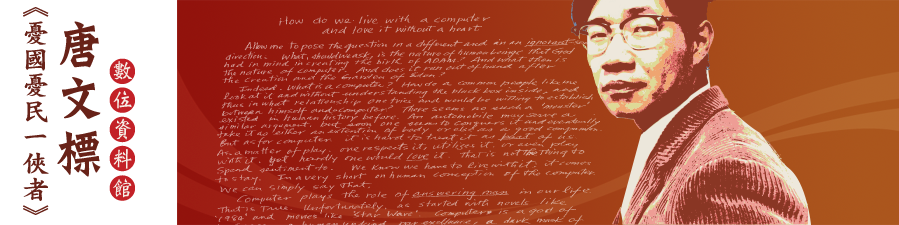 《憂國憂民一俠者》
唐文標
數位資料館
How do we live with a computer
and love it without a heart
Allow me to pose the question in a different and in an ignorant
direction. What, should we ask, is the nature of human beings that God
had in mind in creating the birth of ADAM? And what then is
the nature of computer? And does it run out of human nature after
the creation and the Garden of Eden?
Indeed. What is a computer? How do a common people like me
look at it and without understanding the black box inside, and
thus in what relationship one tries and would be willing to establish
between himself and computer. There seems no such "monster"
existed in human history before. An automobile may serve a
similar argument but soon one seems to conquer it and eventually
take it as either an extension of body or else as a good companion.
But as for computer it is hard to treat it as
As a matter of play, one respects it, utilizes it, or even play
with it. Yet hardly one would love it. That is not the thing to
spend sentiment to. We know we have to live with it, it comes
to stay. In a very short on human conception of the computer
We can simply say that,
Computer plays the role of answering man in our life
That is True. Unfortunately, as started with novels like
'1984' and movies like 'Star Wars' Computers is a god of
a dark mask of